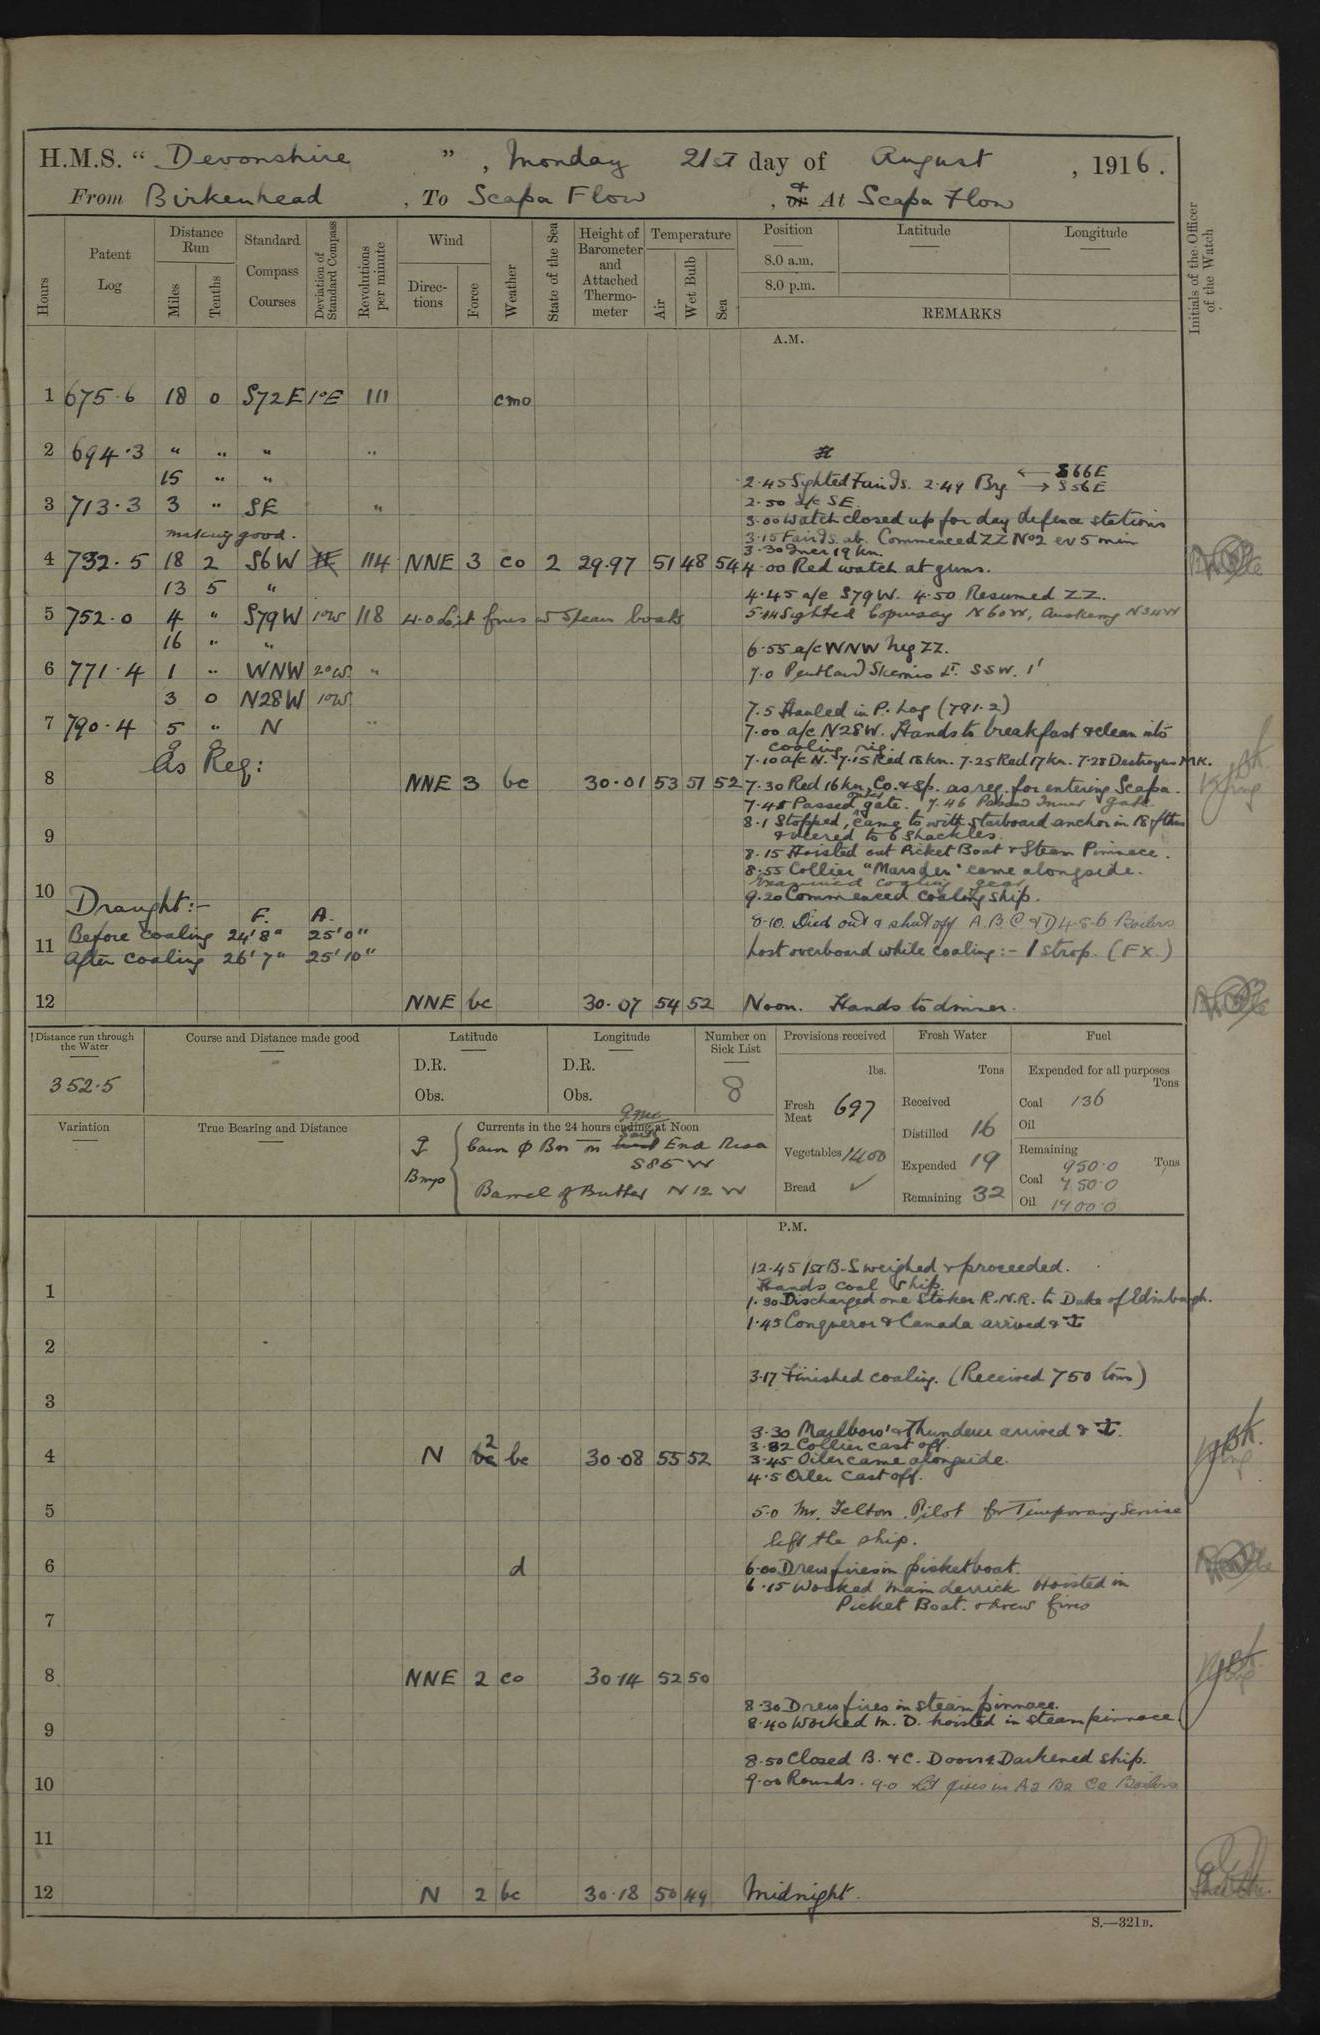 H.M.S. " Devonshire ", Monday 21st day of August, 1916.
From Birkenhead, To Scapa Flow, or At Scapa Flow
Hours
Patent Log
Distance Run
Miles
Tenths
Standard Compass Courses
Deviation of Standard Compass
Revolutions per minute
Wind
Directions
Force
Weather
State of the Sea
Height of Barometer and Attached Thermometer
Temperature
Air
Wet Bulb
Sea
Position
8.0 a.m.
8.0 p.m.
Latitude
Longitude
REMARKS
Initials of the Officer of the Watch
A.M.
1 675.6 18 0 S72E 1°E 111 cmo
2 694.3 " " " "
15 " "
2.45 Sighted Fair Is. 2.49 Brg ← S66E → S56E
3 713.3 3 " SE "
2.50 a/c SE.
3.00 Watch closed up for day defence stations
making good.
3.15 Fair Is. ab. Commenced ZZ No2 ev 5 min
3.30 Incr 19 kn.
4 732.5 18 2 S6W 114 NNE 3 co 2 29.97 51 48 54 4.00 Red watch at guns.
13 5 "
4.45 a/c S79W. 4.50 Resumed ZZ.
5 752.0 4 " S79W 1°W 118 4.0 Lit fires in Steam boats
5.14 Sighted Copinsay N60W, Auskerry N34W
16 " "
6.55 a/c WNW neg ZZ.
6 771.4 1 " WNW 2°W "
7.0 Pentland Skerries Lt. SSW. 1'
3 0 N28W 1°W
7.5 Hauled in P. Log (791.2)
7 790.4 5 " N "
7.00 a/c N28W. Hands to breakfast & clean into
coaling rig.
As Req:
7.10 a/c N. 7.15 Red 18 kn. 7.25 Red 17 kn. 7.28 Destroyer MK.
8 NNE 3 bc 30.01 53 51 52 7.30 Red 16 kn, Co. & Sp. as req. for entering Scapa.
7.45 Passed outer gate. 7.46 Passed Inner gate
8.1 Stopped, came to with starboard anchor in 18 fthms
& veered to 6 shackles.
9
8.15 Hoisted out Picket Boat & Steam Pinnace.
8.55 Collier "Marsden" came alongside.
Examined coaling gear
10
9.20 Commenced coaling ship.
Draught:-
F. A.
8.10. Died out & shut off A.B.C & D 4-5-6 Boilers
Before coaling 24'8" 25'0"
11
Lost overboard while coaling:- 1 strop. (FX.)
After coaling 26'7" 25'10"
12 NNE bc 30.07 54 52 Noon. Hands to dinner.
Distance run through the Water
352.5
Course and Distance made good
Latitude
D.R.
Obs.
Longitude
D.R.
Obs.
Number on Sick List
8
Provisions received
lbs.
Fresh Meat 697
Vegetables 1400
Bread ✓
Fresh Water
Tons
Received
Distilled 16
Expended 19
Remaining 32
Fuel
Expended for all purposes
Tons
Coal 136
Oil
Remaining
Tons
950.0
Coal 750.0
Oil 1900.0
Variation
True Bearing and Distance
Currents in the 24 hours ending at Noon
Cairn on End Risa
S85W
Barrel of Butter N12W
P.M.
12.45 1st B.S weighed & proceeded.
Hands coal ship.
1
1.30 Discharged one Stoker R.N.R. to Duke of Edinburgh.
1.45 Conqueror & Canada arrived &
2
3.17 Finished coaling. (Received 750 tons)
3
3.30 Marlboro' & Thunderer arrived &
3.32 Collier cast off.
4 N 2 bc 30.08 55 52 3.45 Oiler came alongside.
4.5 Oiler cast off.
5
5.0 Mr. Felton, Pilot for Temporary Service
left the ship.
6 d 6.00 Drew fires in picket boat.
6.15 Worked main derrick. Hoisted in
Picket Boat. & drew fires
7
8 NNE 2 co 30.14 52 50
8.30 Drew fires in steam pinnace.
9
8.40 Worked M. D. hoisted in steam pinnace.
8.50 Closed B. & C. Doors & Darkened ship.
10
9.00 Rounds. 9.0 Lit fires in A2 B2 C2 Boilers
11
12 N 2 bc 30.18 50 49 Midnight.
S.—321B.